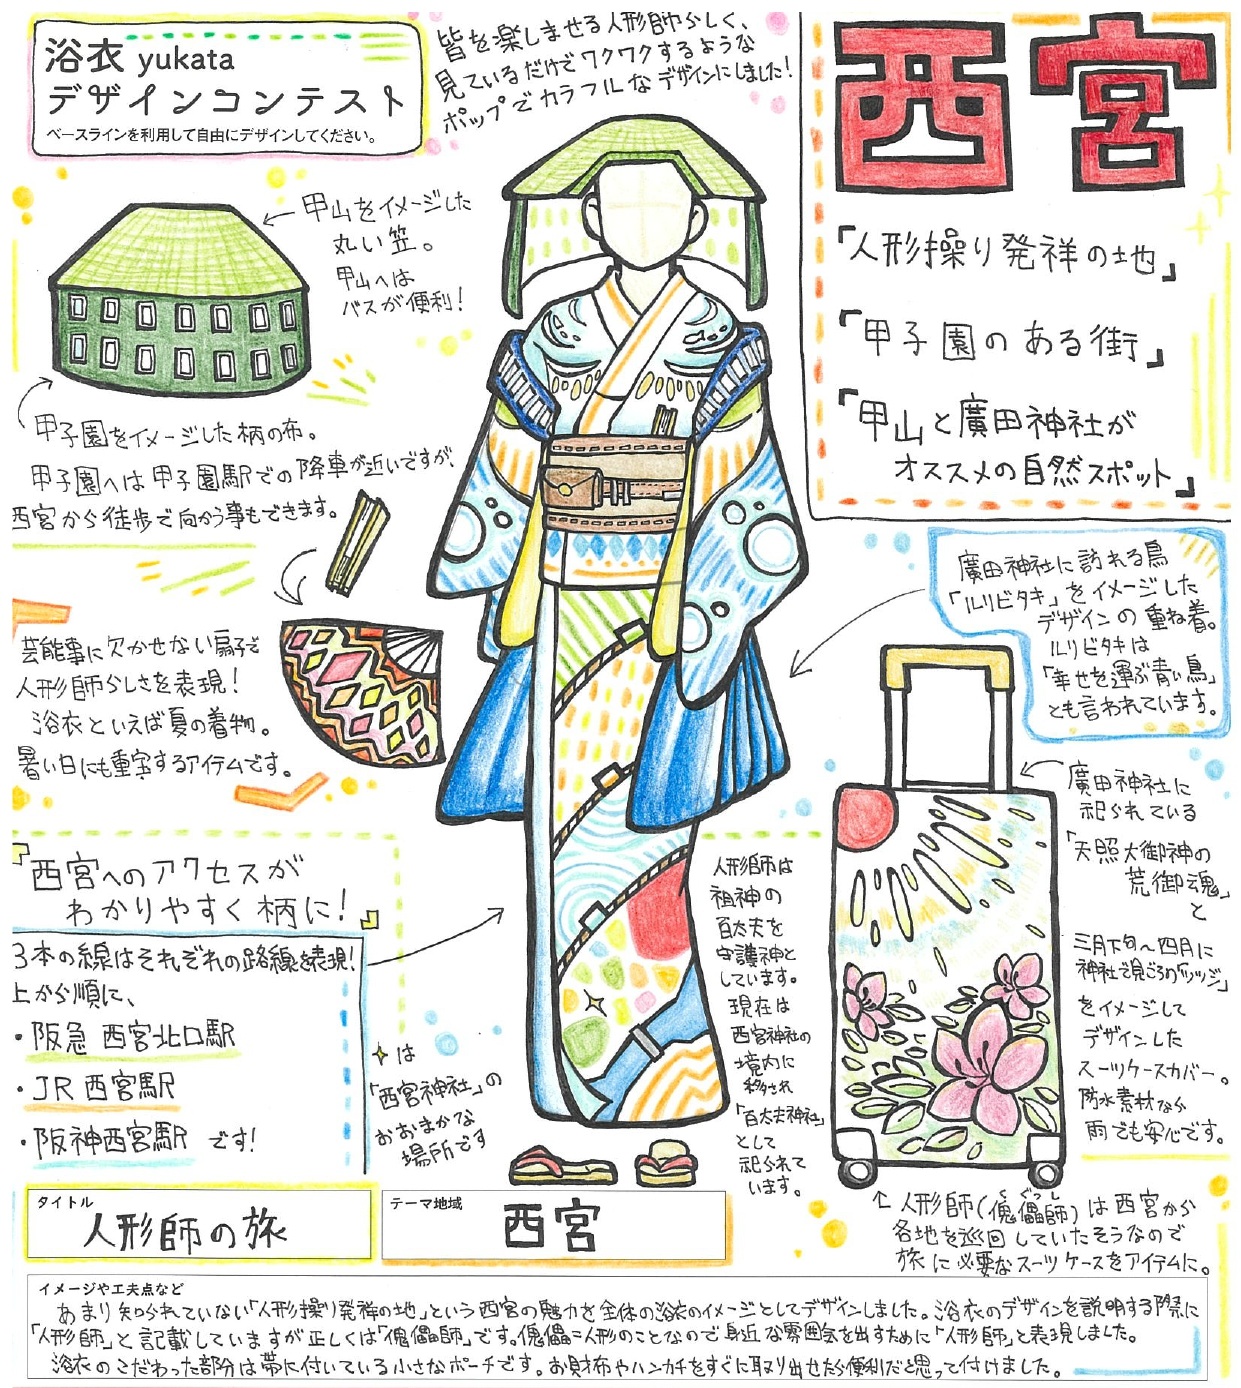 浴衣 yukata
デザインコンテスト
ベースラインを利用して自由にデザインしてください。
皆を楽しませる人形師らしく、
見ているだけでワクワクするような
ポップでカラフルなデザインにしました!
西宮
「人形操り発祥の地」
「甲子園のある街」
「甲山と廣田神社が
オススメの自然スポット」
甲山をイメージした
丸い笠。
甲山へは
バスが便利!
甲子園をイメージした柄の布。
甲子園へは甲子園駅での降車が近いですが、
西宮から徒歩で向かう事もできます。
芸能事に欠かせない扇子で
人形師らしさを表現!
浴衣といえば夏の着物。
暑い日にも重宝するアイテムです。
廣田神社に訪れる鳥
「ルリビタキ」をイメージした
デザインの重ね着。
ルリビタキは
「幸せを運ぶ青い鳥」
とも言われています。
廣田神社に
祀られている
「天照大御神の
荒御魂」
と
三月下旬〜四月に
神社で見ごろの「ツツジ」
をイメージして
デザインした
スーツケースカバー。
防水素材なら
雨でも安心です。
「西宮へのアクセスが
わかりやすく柄に!」
3本の線はそれぞれの路線を表現!
上から順に、
・阪急 西宮北口駅
・JR西宮駅
・阪神西宮駅 です!
✦は
「西宮神社」の
おおまかな
場所です
人形師は
祖神の
百太夫を
守護神と
しています。
現在は
西宮神社の
境内に
移され
「百太夫神社」
として
祀られて
います。
↑人形師(傀儡師)は西宮から
くぐつし
各地を巡回していたそうなので
旅に必要なスーツケースをアイテムに。
タイトル
人形師の旅
テーマ地域
西宮
イメージや工夫点など
あまり知られていない「人形操り発祥の地」という西宮の魅力を全体の浴衣のイメージとしてデザインしました。浴衣のデザインを説明する際に
「人形師」と記載していますが正しくは「傀儡師」です。傀儡=人形のことなので身近な雰囲気を出すために「人形師」と表現しました。
浴衣のこだわった部分は帯に付いている小さなポーチです。お財布やハンカチをすぐに取り出せたら便利だと思って付けました。